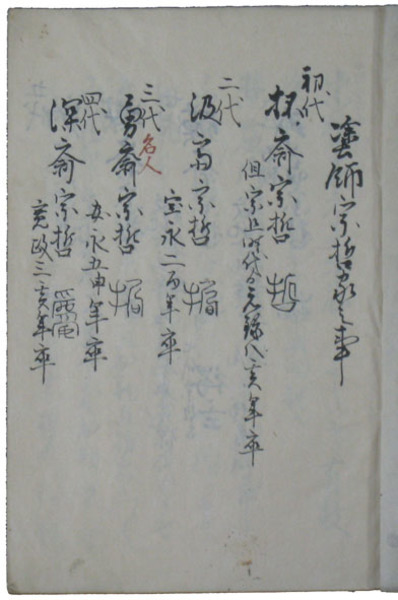 塗師宗哲家之事
初代
林斎宗哲 哲
但宗旦時代ゟ元禄八亥年卒
二代
汲斎宗哲
宝永二酉年卒
三代 名人
勇斎宗哲
安永五申年卒
四代
深斎宗哲
寛政三亥年卒